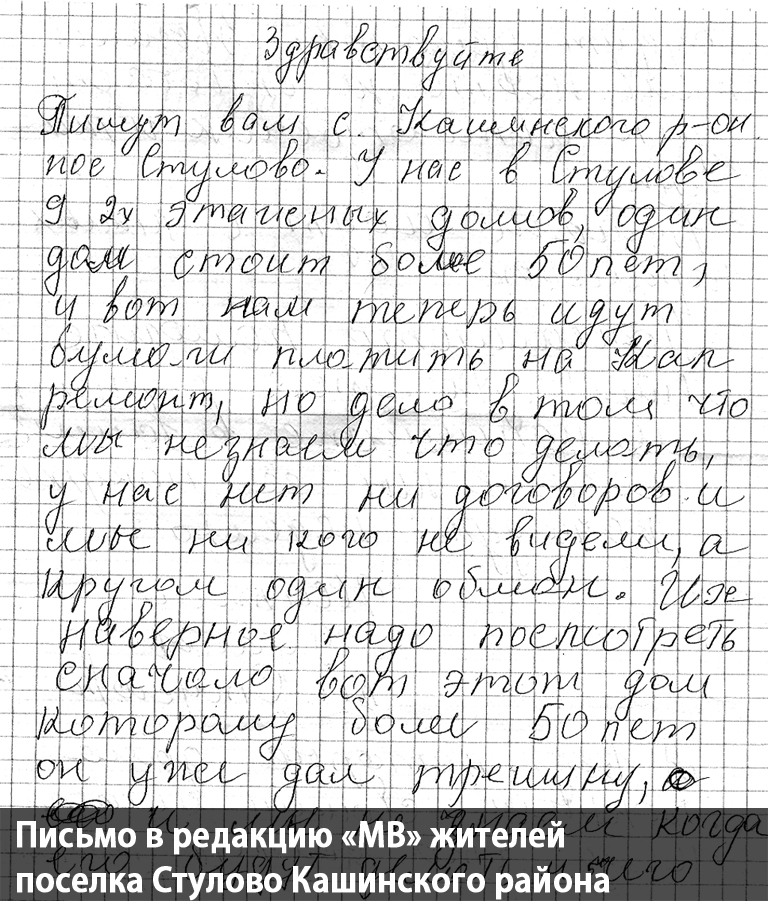 Здравствуйте
Пишут вам с. Кашинского р-он
пос Стулово. У нас в Стулове
9 2х этажных домов, один
дом стоит более 50 лет,
и вот нам теперь идут
бумаги платить на Кап
ремонт, но дело в том что
мы незнаем что делать,
у нас нет ни договоров и
мы ни кого не видели, а
кругом один обман. Им
наверное надо посмотреть
сначало вот этот дом
которому боле 50 лет
он уже дал трешину,
и мы не знаем когда
его будут делать и чего
Письмо в редакцию «МВ» жителей
поселка Стулово Кашинского района